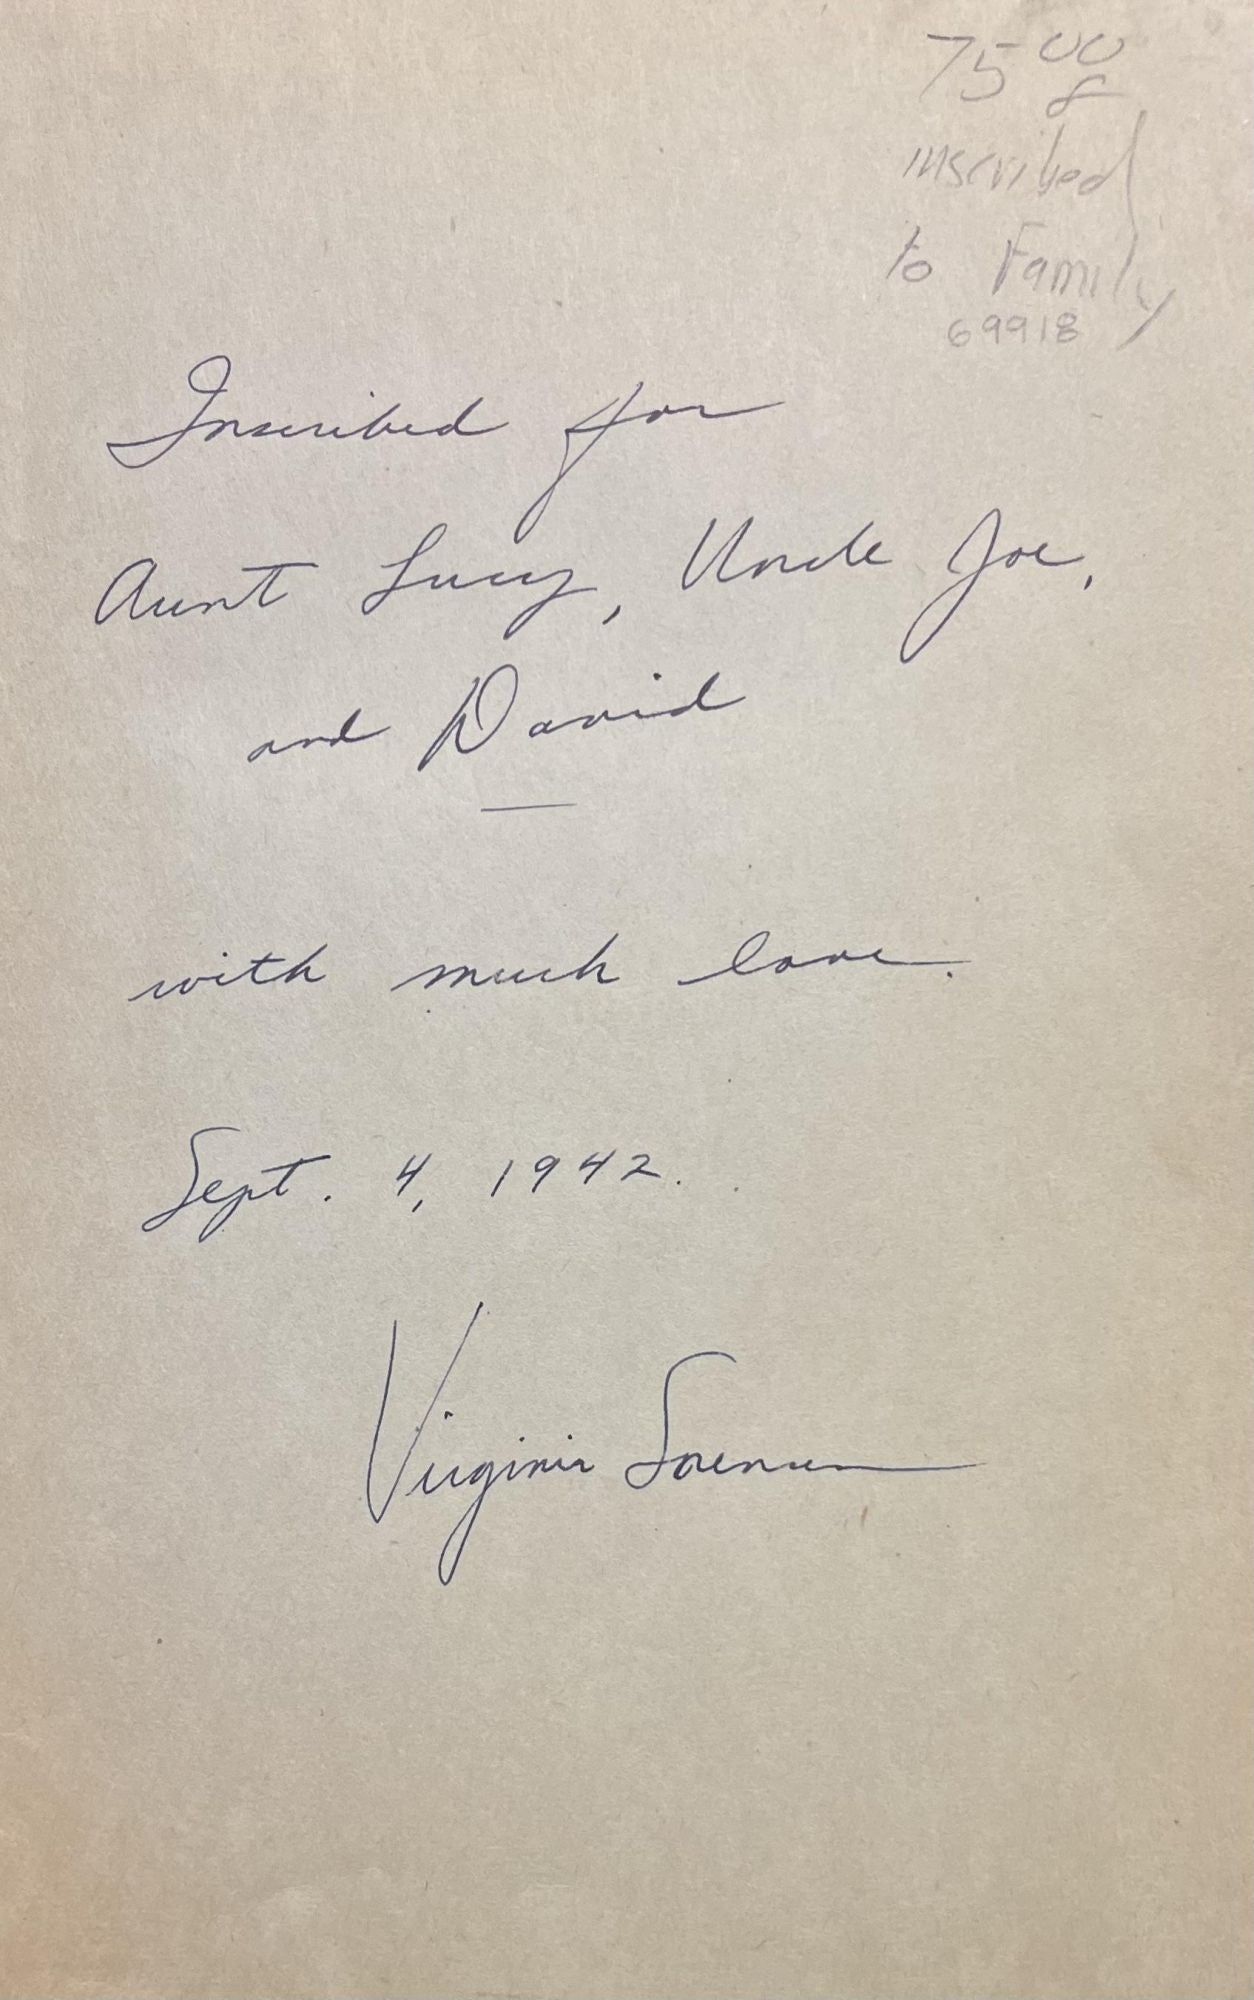 75 00
inscribed
to Family
69918
Inscribed for
Aunt Lucy, Uncle Joe,
and David
with much love.
Sept. 4, 1942.
Virginia Sorensen